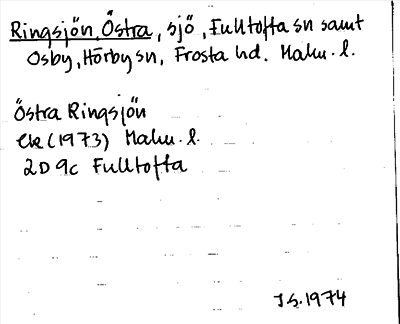 Ringsjön, Östra, sjö, Fulltofta sn samt
Osby, Hörby sn, Frosta hd. Malm. l.
Östra Ringsjön
ek (1973) Malm. l.
2D 9c Fulltofta
J S. 1974